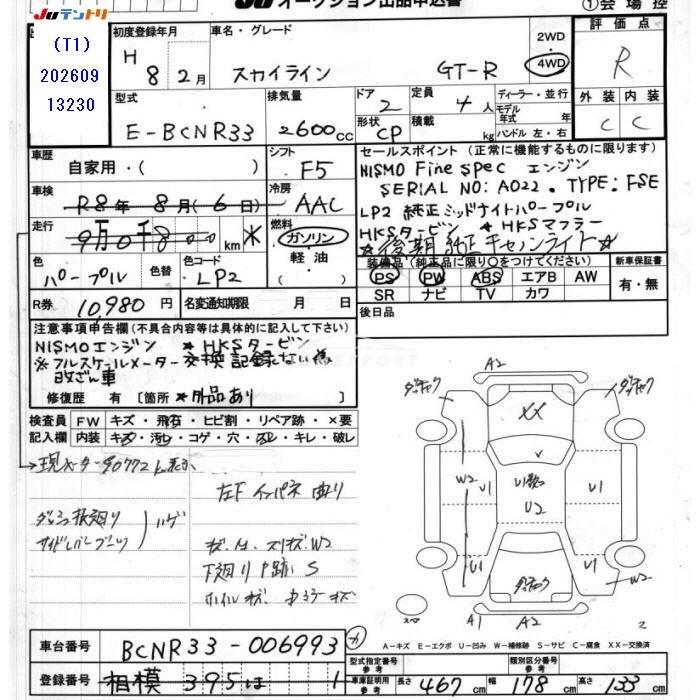 Juテントリ
JU オークション出品申込書
①会場控
(T1)
202609
13230
初度登録年月
H 8 2月
車名・グレード
スカイライン GT-R
2WD
4WD
評価点
R
外装 内装
C C
型式
E-BCNR33
排気量
2600cc
ドア 2
形状 CP
定員 4人
積載 kg
ディーラー・並行
モデル年式 年
ハンドル 左・右
車歴
自家用・( )
シフト F5
車検
R8年8月(6日)
冷房 AAC
走行
9万0千800km ✳
燃料
ガソリン
軽油
( )
色 パープル
色替
色コード LP2
R券 10,980円
名変通知期限 月 日
セールスポイント (正常に機能するものに限ります)
NISMO Fine Spec エンジン
SERIAL NO: A022. TYPE: FSE
LP2 純正ミッドナイトパープル
HKSタービン ★HKSマフラー
★後期純正キセノンライト★
装備品(純正品に限り○をつけてください)
PS PW ABS エアB AW
SR ナビ TV カワ
新車保証書
有・無
後日品
注意事項申告欄(不具合内容等は具体的に記入して下さい)
NISMOエンジン ★HKSタービン
※フルスケールメーター交換記録ない為
改ざん車
修復歴 有 [箇所 ★外品あり ]
検査員記入欄
FW キズ・飛石・ヒビ割・リペア跡・×要
内装 キズ・汚レ・コゲ・穴・スレ・キレ・破レ
現メーター90772km表示
左F インパネ 曲り
ダッシュ板廻り
サイドレバーブーツ
ハゲ
下廻り S
A2
XX
V
W2
U1
U2
U1
U1
W2
A1
A2
スペア
A-キズ E-エクボ U-凹み W-補修跡 S-サビ C-腐食 XX-交換済
車台番号 BCNR33-006993
登録番号 相模 395 は 1
型式指定番号
類別区分番号
車庫証明用参考 長さ 467cm 幅 178cm 高さ 133cm